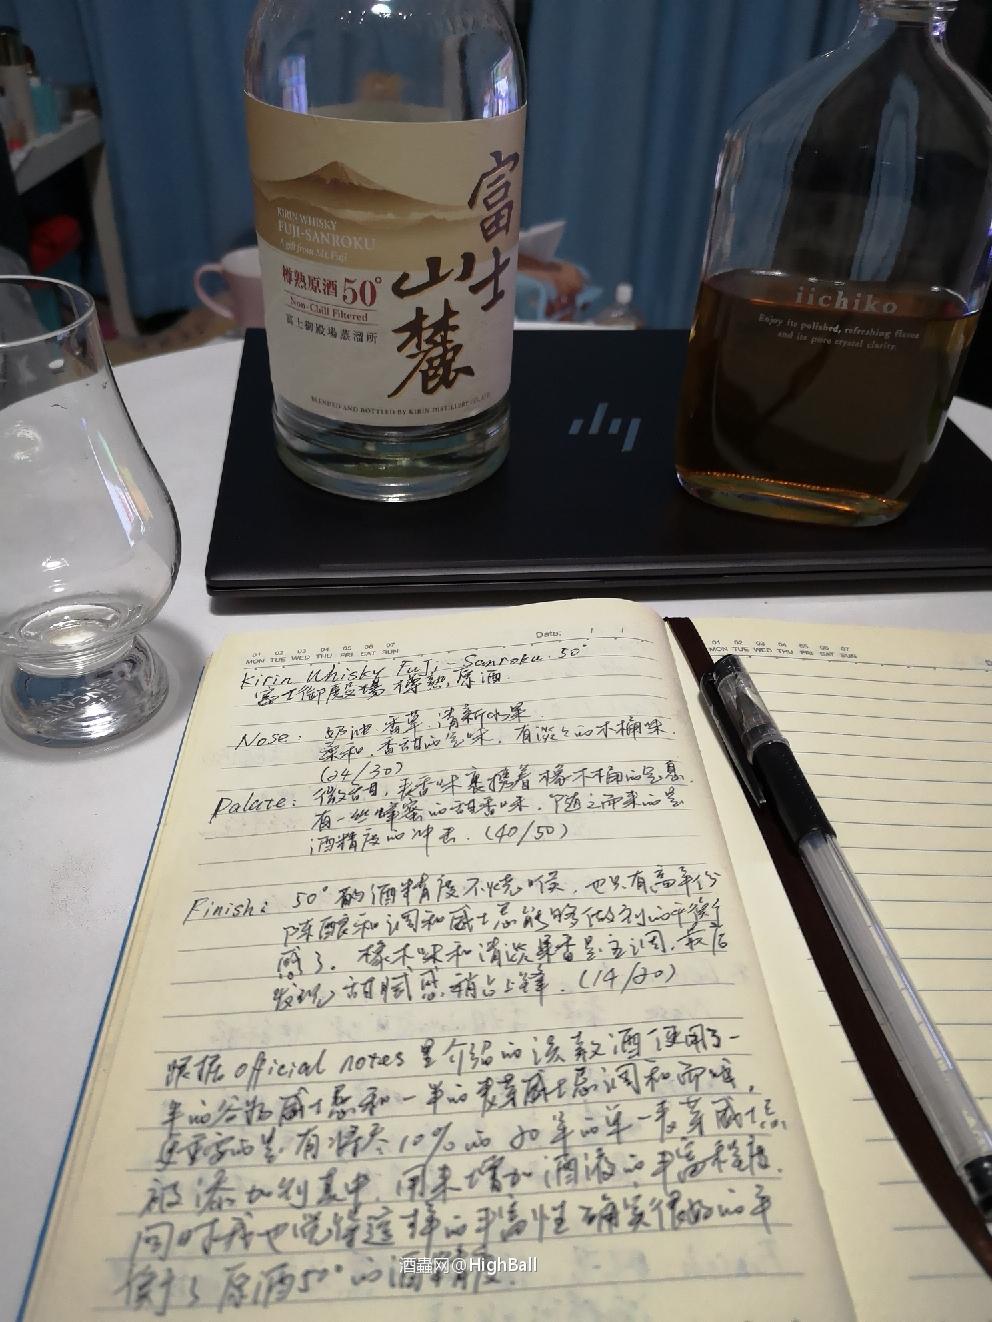 富士山麓
KIRIN WHISKY
FUJI-SANROKU
A gift from Mt. Fuji
樽熟原酒50°
Non-Chill Filtered
富士御殿場蒸溜所
BLENDED AND BOTTLED BY KIRIN DISTILLERY CO., LTD.
iichiko
Enjoy its polished, refreshing flavor
and its pure crystal clarity.
hp
01 02 03 04 05 06 07
MON TUE WED THU FRI SAT SUN
Date: / /
Kirin Whisky Fuji-Sanroku 50°
富士御殿場 樽熟原酒
Nose: 奶油 香草 清新水果
柔和、香甜的气味，有淡淡的木桶味.
(24/30)
Palate: 微甜，麦香味裹携着橡木桶的气息
有一丝蜂蜜的甜香味，随之而来的是
酒精度的冲击.（40/50）
Finish: 50°的酒精度不烧喉，也只有高年份
陈酿和调和威士忌能够做到的平衡
感了. 橡木味和清淡果香是主调，最后
发现甜腻感稍占上锋.（14/20）
根据official notes里介绍的该款酒使用了一
半的谷物威士忌和一半的麦芽威士忌调和而成,
更重要的是有将尽10%的20年的单一麦芽威士忌
被添加到其中，用来增加酒液的丰富程度.
同时我也觉得這样的丰富性确实很好的平
衡了原酒50°的酒精度.
01 02 03 04 05 06 07
MON TUE WED THU FRI SAT SUN
酒蟲网@HighBall